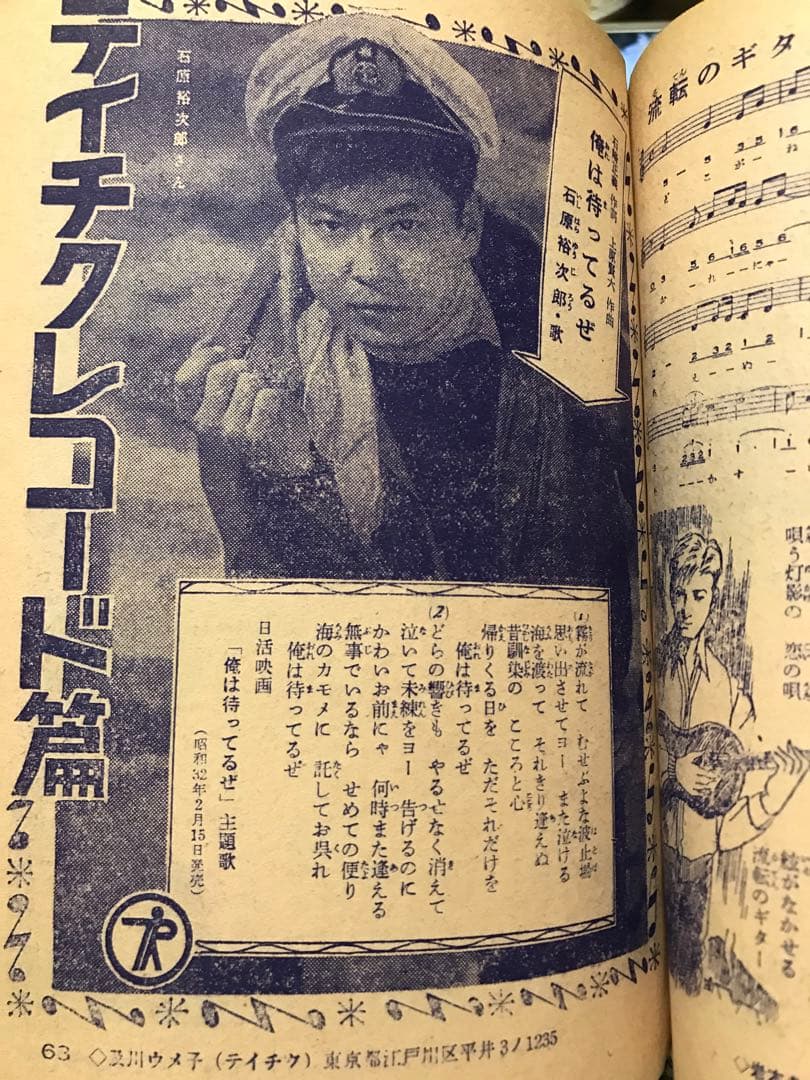 テイチクレコード篇
石原裕次郎さん
石崎正美 作詞 上原賢六 作曲
俺は待ってるぜ
石原裕次郎・歌
(1)霧が流れて むせぶよな波止場
思い出させてヨー また泣ける
海を渡って それきり逢えぬ
昔馴染の こころと心
帰りくる日を ただそれだけを
俺は待ってるぜ
(2)どらの響きも やるせなく消えて
泣いて未練をヨー 告げるのに
かわいお前にゃ 何時また逢える
無事でいるなら せめての便り
海のカモメに 託してお呉れ
俺は待ってるぜ
日活映画
「俺は待ってるぜ」主題歌
(昭和32年2月15日発売)
63 ◇及川ウメ子(テイチク)東京都江戸川区平井3ノ1235
流転のギタ
唄う灯影の 恋の唄
絃がなかせる
流転のギター